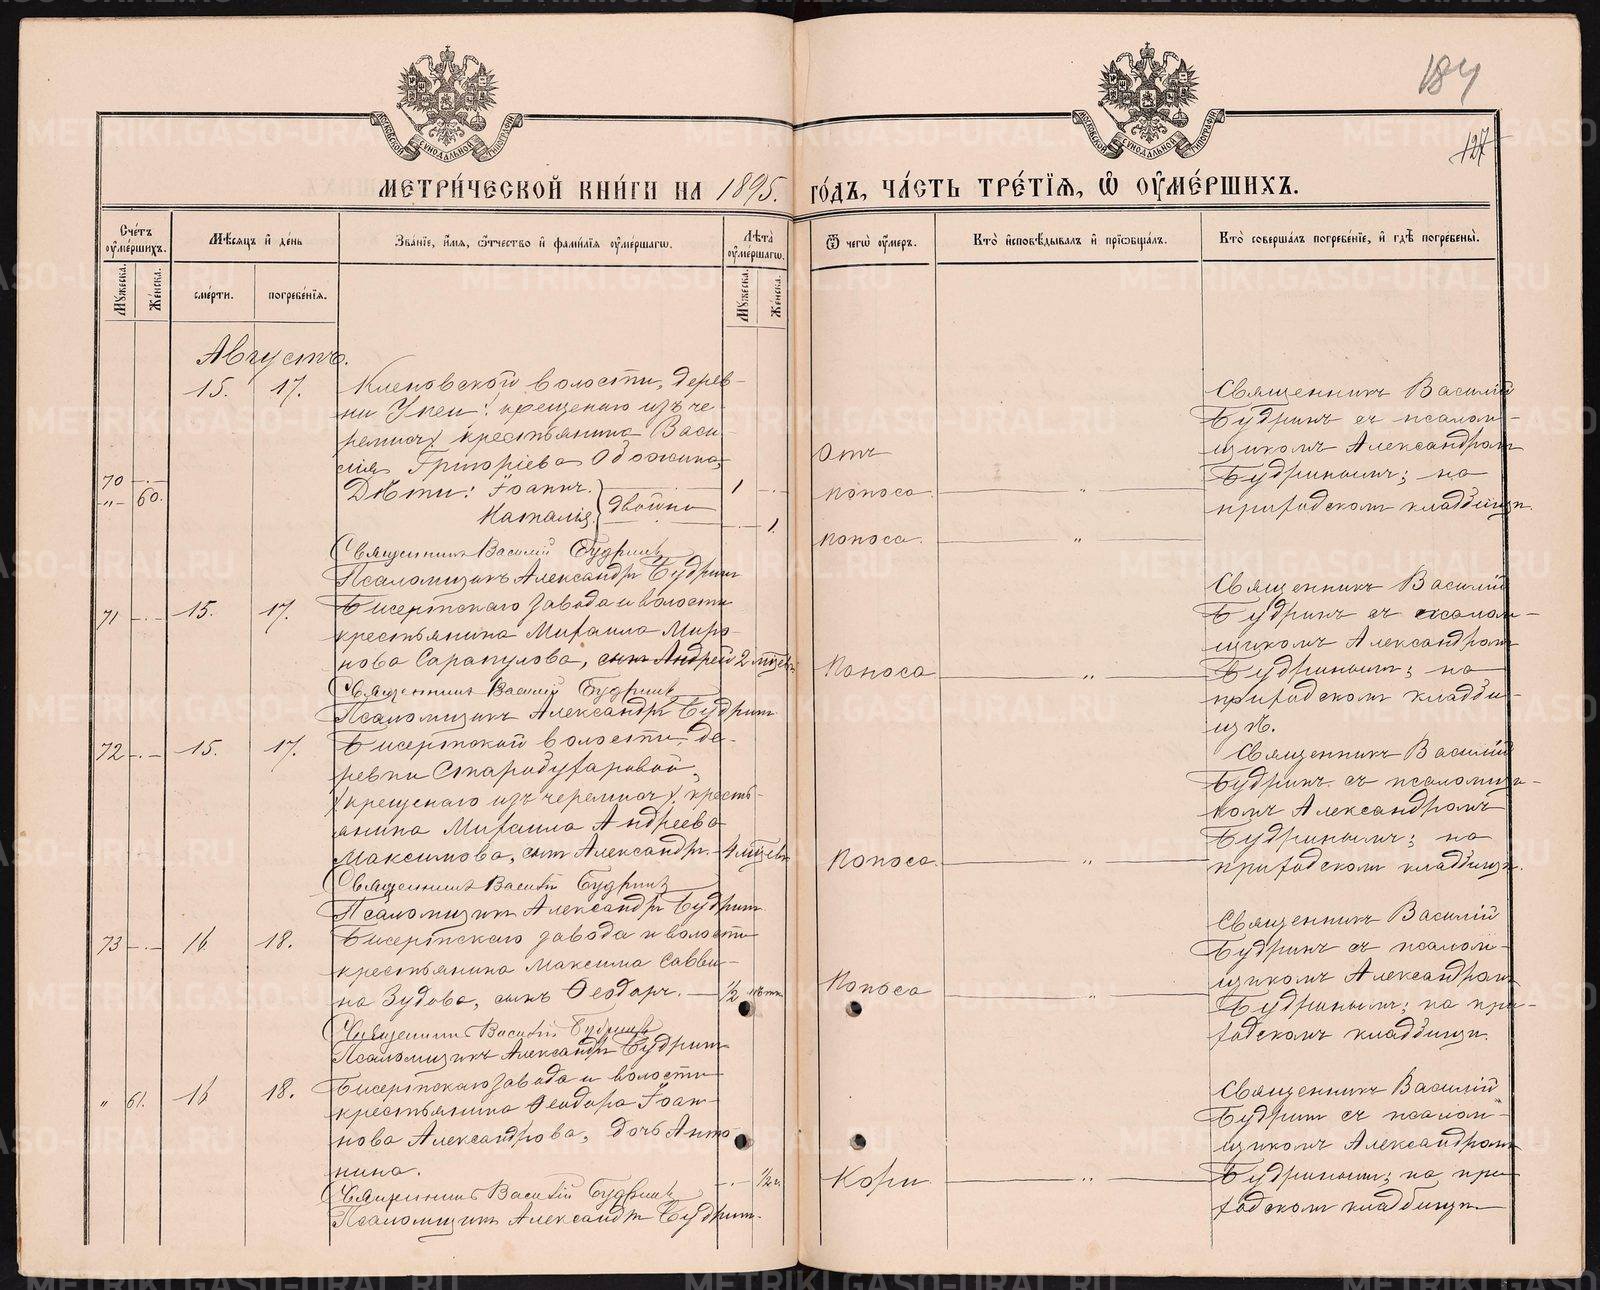 184
127
МОСКОВСКОЙ СѴНОДАЛЬНОЙ ТИПОГРАФІИ
МОСКОВСКОЙ СѴНОДАЛЬНОЙ ТИПОГРАФІИ
МЕТРИ́ЧЕСКОЙ КНИ́ГИ НА 1895. ГО́ДЪ, ЧА́СТЬ ТРЕ́ТЇѦ, Ѡ҆ ОУ҆МЕ́РШИХЪ.
Сче́тъ оу҆ме́ршихъ.
Мѣ́сѧцъ и҆ де́нь
Зва́нїе, и҆́мѧ, ѻ҆́тчество и҆ фами́лїѧ оу҆ме́ршагѡ.
Лѣ́та оу҆ме́ршагѡ.
Ѿ чегѡ̀ оу҆́меръ.
Кто̀ и҆сповѣ́дывалъ и҆ прїѡбща́лъ.
Кто̀ соверша́лъ погребе́нїе, и҆ гдѣ̀ погребены̀.
Мꙋ́жеска.
Же́нска.
сме́рти.
погребе́нїѧ.
Мꙋ́жеска.
Же́нска.
Августъ.
15. 17. Кленовской волости, дерев-
ни Упеи: крещенаго изъ че-
ремисъ крестьянина Васи-
лія Григоріева Обожина,
70 -.-
"- 60. Дѣти: Іоаннъ. 1 -.-
Наталія. двойни -.- 1.
Отъ
поноса. "
поноса. "
Священникъ Василій
Будринъ съ псалом-
щикомъ Александромъ
Будринымъ; на
приходскомъ кладбищѣ.
Священникъ Василій Будринъ
Псаломщикъ Александръ Будринъ
71 -.- 15. 17. Бисертскаго завода и волости
крестьянина Михаила Миро-
нова Сарапулова, сынъ Андрей 2 мѣсяц.
Поноса "
Священникъ Василій
Будринъ съ псалом-
щикомъ Александромъ
Будринымъ; на
приходскомъ кладби-
щѣ.
Священникъ Василій Будринъ
Псаломщикъ Александръ Будринъ
72 -.- 15. 17. Бисертской волости, де-
ревни Старобухаровой,
(крещенаго изъ черемисъ) кресть-
янина Михаила Андреева
Максимова, сынъ Александръ. 4 мѣсяц.
Поноса. "
Священникъ Василій
Будринъ съ псаломщи-
комъ Александромъ
Будринымъ; на
приходскомъ кладбищѣ.
Священникъ Василій Будринъ
Псаломщикъ Александръ Будринъ
73 -.- 16 18. Бисертскаго завода и волости
крестьянина Максима Савви-
на Зудова, сынъ Ѳеодоръ. 1/2
Поноса "
Священникъ Василій
Будринъ съ псалом-
щикомъ Александромъ
Будринымъ; на при-
ходскомъ кладбищѣ.
Священникъ Василій Будринъ
Псаломщикъ Александръ Будринъ
" 61. 16 18. Бисертскаго завода и волости
крестьянина Ѳеодора Іоан-
нова Александрова, дочь Анто-
нина. -.- 1/2 г.
Кори "
Священникъ Василій
Будринъ съ псалом-
щикомъ Александромъ
Будринымъ; на при-
ходскомъ кладбищѣ.
Священникъ Василій Будринъ
Псаломщикъ Александръ Будринъ.
METRIKI.GASO-URAL.RU